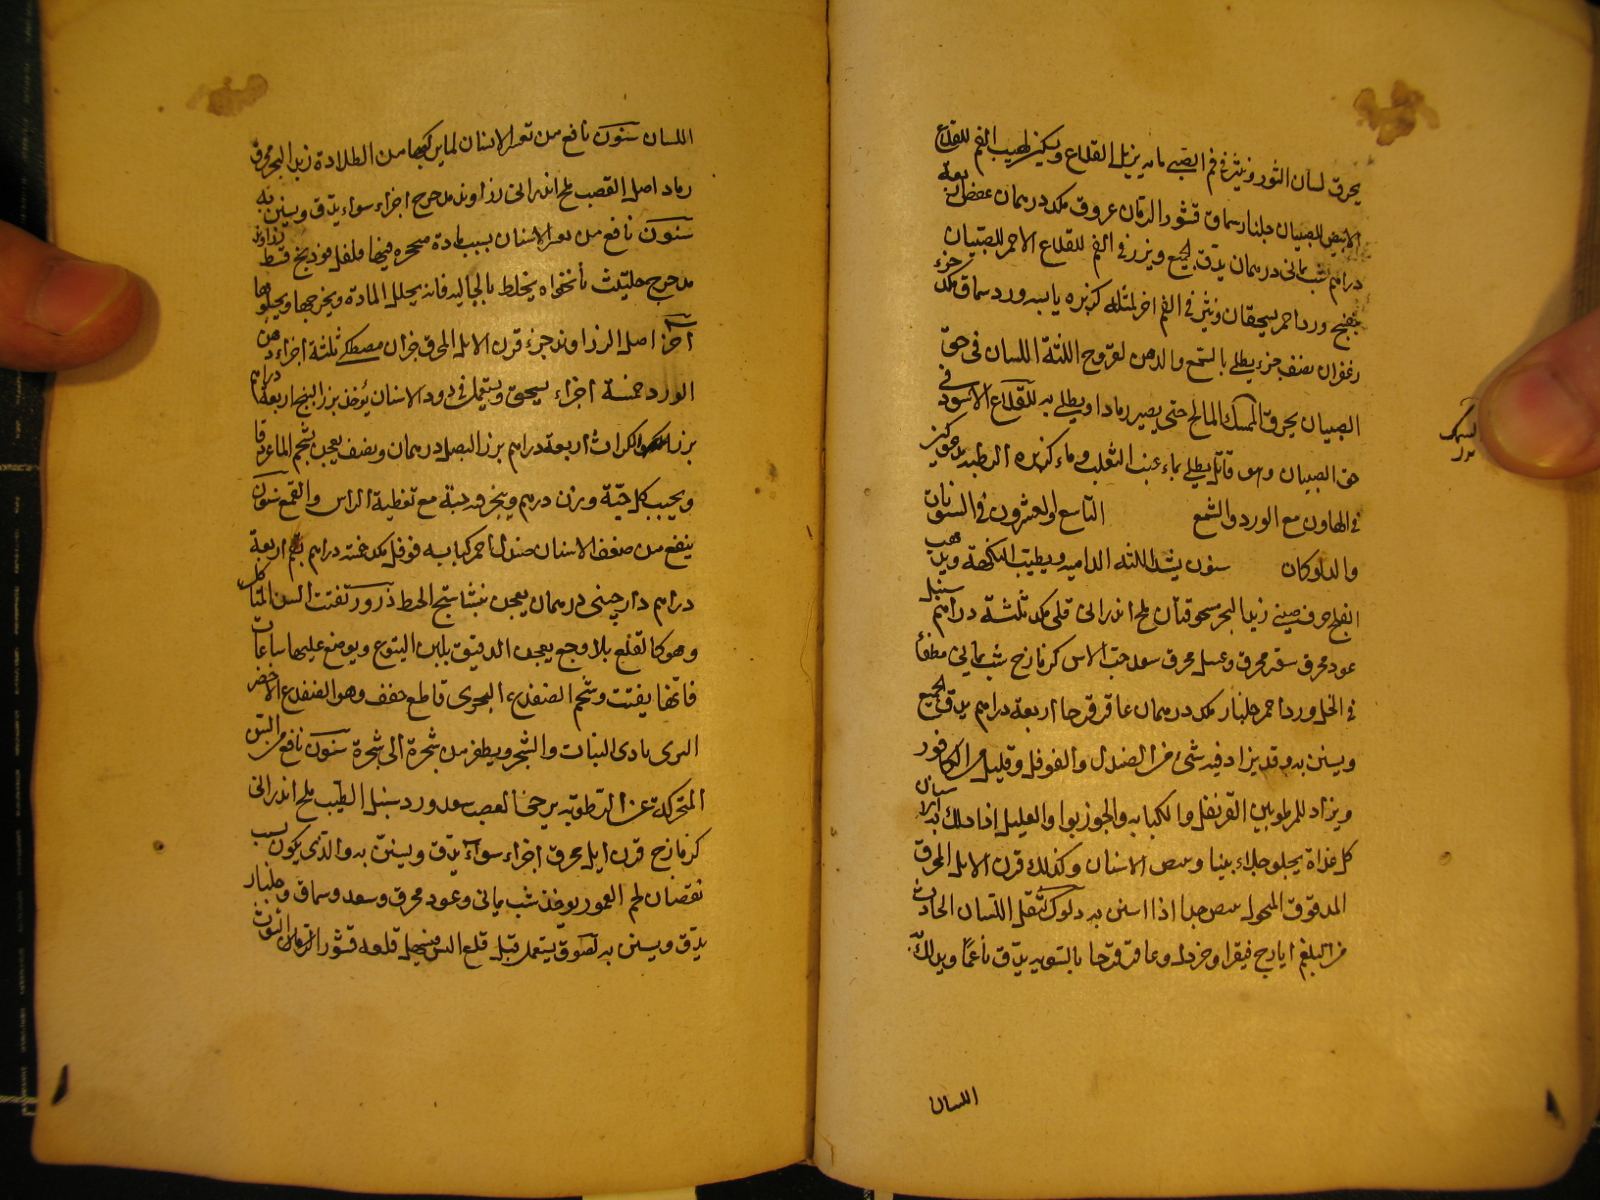 يحرق لسان الثور وينثر في فم الصبي فانه يزيل القلاع ويسكن لهيب الفم للقلاع
الابيض للصبيان جلنار سماق قشور الرمان عروق مكد درهمان عفص اربعة
دراهم شب يماني درهمان يدق الجميع ويزر في الفم للقلاع الاحمر للصبيان
بنفسج ورد احمر يسحقان وينثر في الفم اخر لمثله كزبره يابسه ورد سماق مكد جزء
زعفران نصف جزء يطلى بالشمع والدهن لقروح اللثة اللسان في حق
الصبيان يحرق السمك المالح حتى يصير رمادا ويطلى به للقلاع الاسود في
حق الصبيان وهو قاتل يطلى بماء عنب الثعلب وماء كزبره الرطبه مدعوكين
في الهاون مع الورد والشمع التاسع والعشرون في السنونات
والدلوكات سنون يشد اللثه الداميه ويطيب النكهة ويذهب
القلح خزف صيني زبد البحر مسحوقان ملح اندراني قلي مكد ثلثة دراهم سنبل
عود محرق سعتر محرق وعسل محرق سعد حب الاس كزمازج شب يماني مطفأ
في الخل ورد احمر جلنار مكد درهمان عاقرقرحا اربعة دراهم يدق الجميع
ويستن به وقد يزاد فيه شئ من الصندل والفوفل وقليل من الكافور
ويزاد للمرطوبين القرنفل والكبابه والجوزبوا والعليل اذا دلك به الاسنان
كل غداة يجلو جلاء بينا ويبيض الاسنان وكذلك قرن الايل المحرق
المدقوق المنخول يبيض جدا اذا استن به دلوك لثقل اللسان الحادث
من البلغم ايارج فيقرا وخردل وعاقرقرحا بالسويه يدق ناعما ويدلك
السمك
اللسان
اللسان سنون نافع من تعفر الاسنان لما يركبها من الطلاوة زبد البحر محرق
رماد اصل القصب ملح اندراني زراوند مدحرج اجزاء سواء يدق ويستن به
سنون نافع من الاسنان بسبب مادة متحجرة فيها فلفل فودنج قسط زراوند
مدحرج حلتيث نانخواه يخلط بالجاليه فانه يحلل المادة ويخرجها ويجلوها
آخر اصل الزراوند جزء قرن الايل المحرق جزان مصطكى ثلثة اجزاء دهن
الورد خمسة اجزاء يسحق ويستعمل في دود الاسنان يؤخذ بزر البنج اربعة دراهم
بزر الكراث اربعة دراهم بزر البصل درهمان ونصف يعجن بشحم الماعز دقا
ويحبب كل حبة وزن درهم ويبخر فيه حبة مع تغطية الراس والقمع سنون
ينفع من ضعف الاسنان صندل احمر كبابه فوفل مكد خمسة دراهم بقم اربعة
دراهم دارچيني درهمان يعجن بنشاستج الحنطه ذرور تفتت السن المتاكل
وهو كالقلع بلا وجع يعجن الدقيق بلبن اليتوع ويوضع عليها ساعات
فانها يفتت وشحم الضفدع البحري قاطع مجفف وهو الضفدع الاخضر
البري ياوي النبات والشجر ويطفر من شجرة الى شجرة سنون نافع من السن
المتحركة عن الرطوبه سعد ورد سنبل الطيب ملح اندراني
كزمازج قرن ايل محرق اجزاء سواء يدق ويستن به والذي يكون بسبب
نقصان لحم العمور يوخذ شب يماني وعود محرق وسعد وسماق وجلنار
يدق ويستن به لصوق يستعمل قبل قلع السن فيسهل قلعه قشور